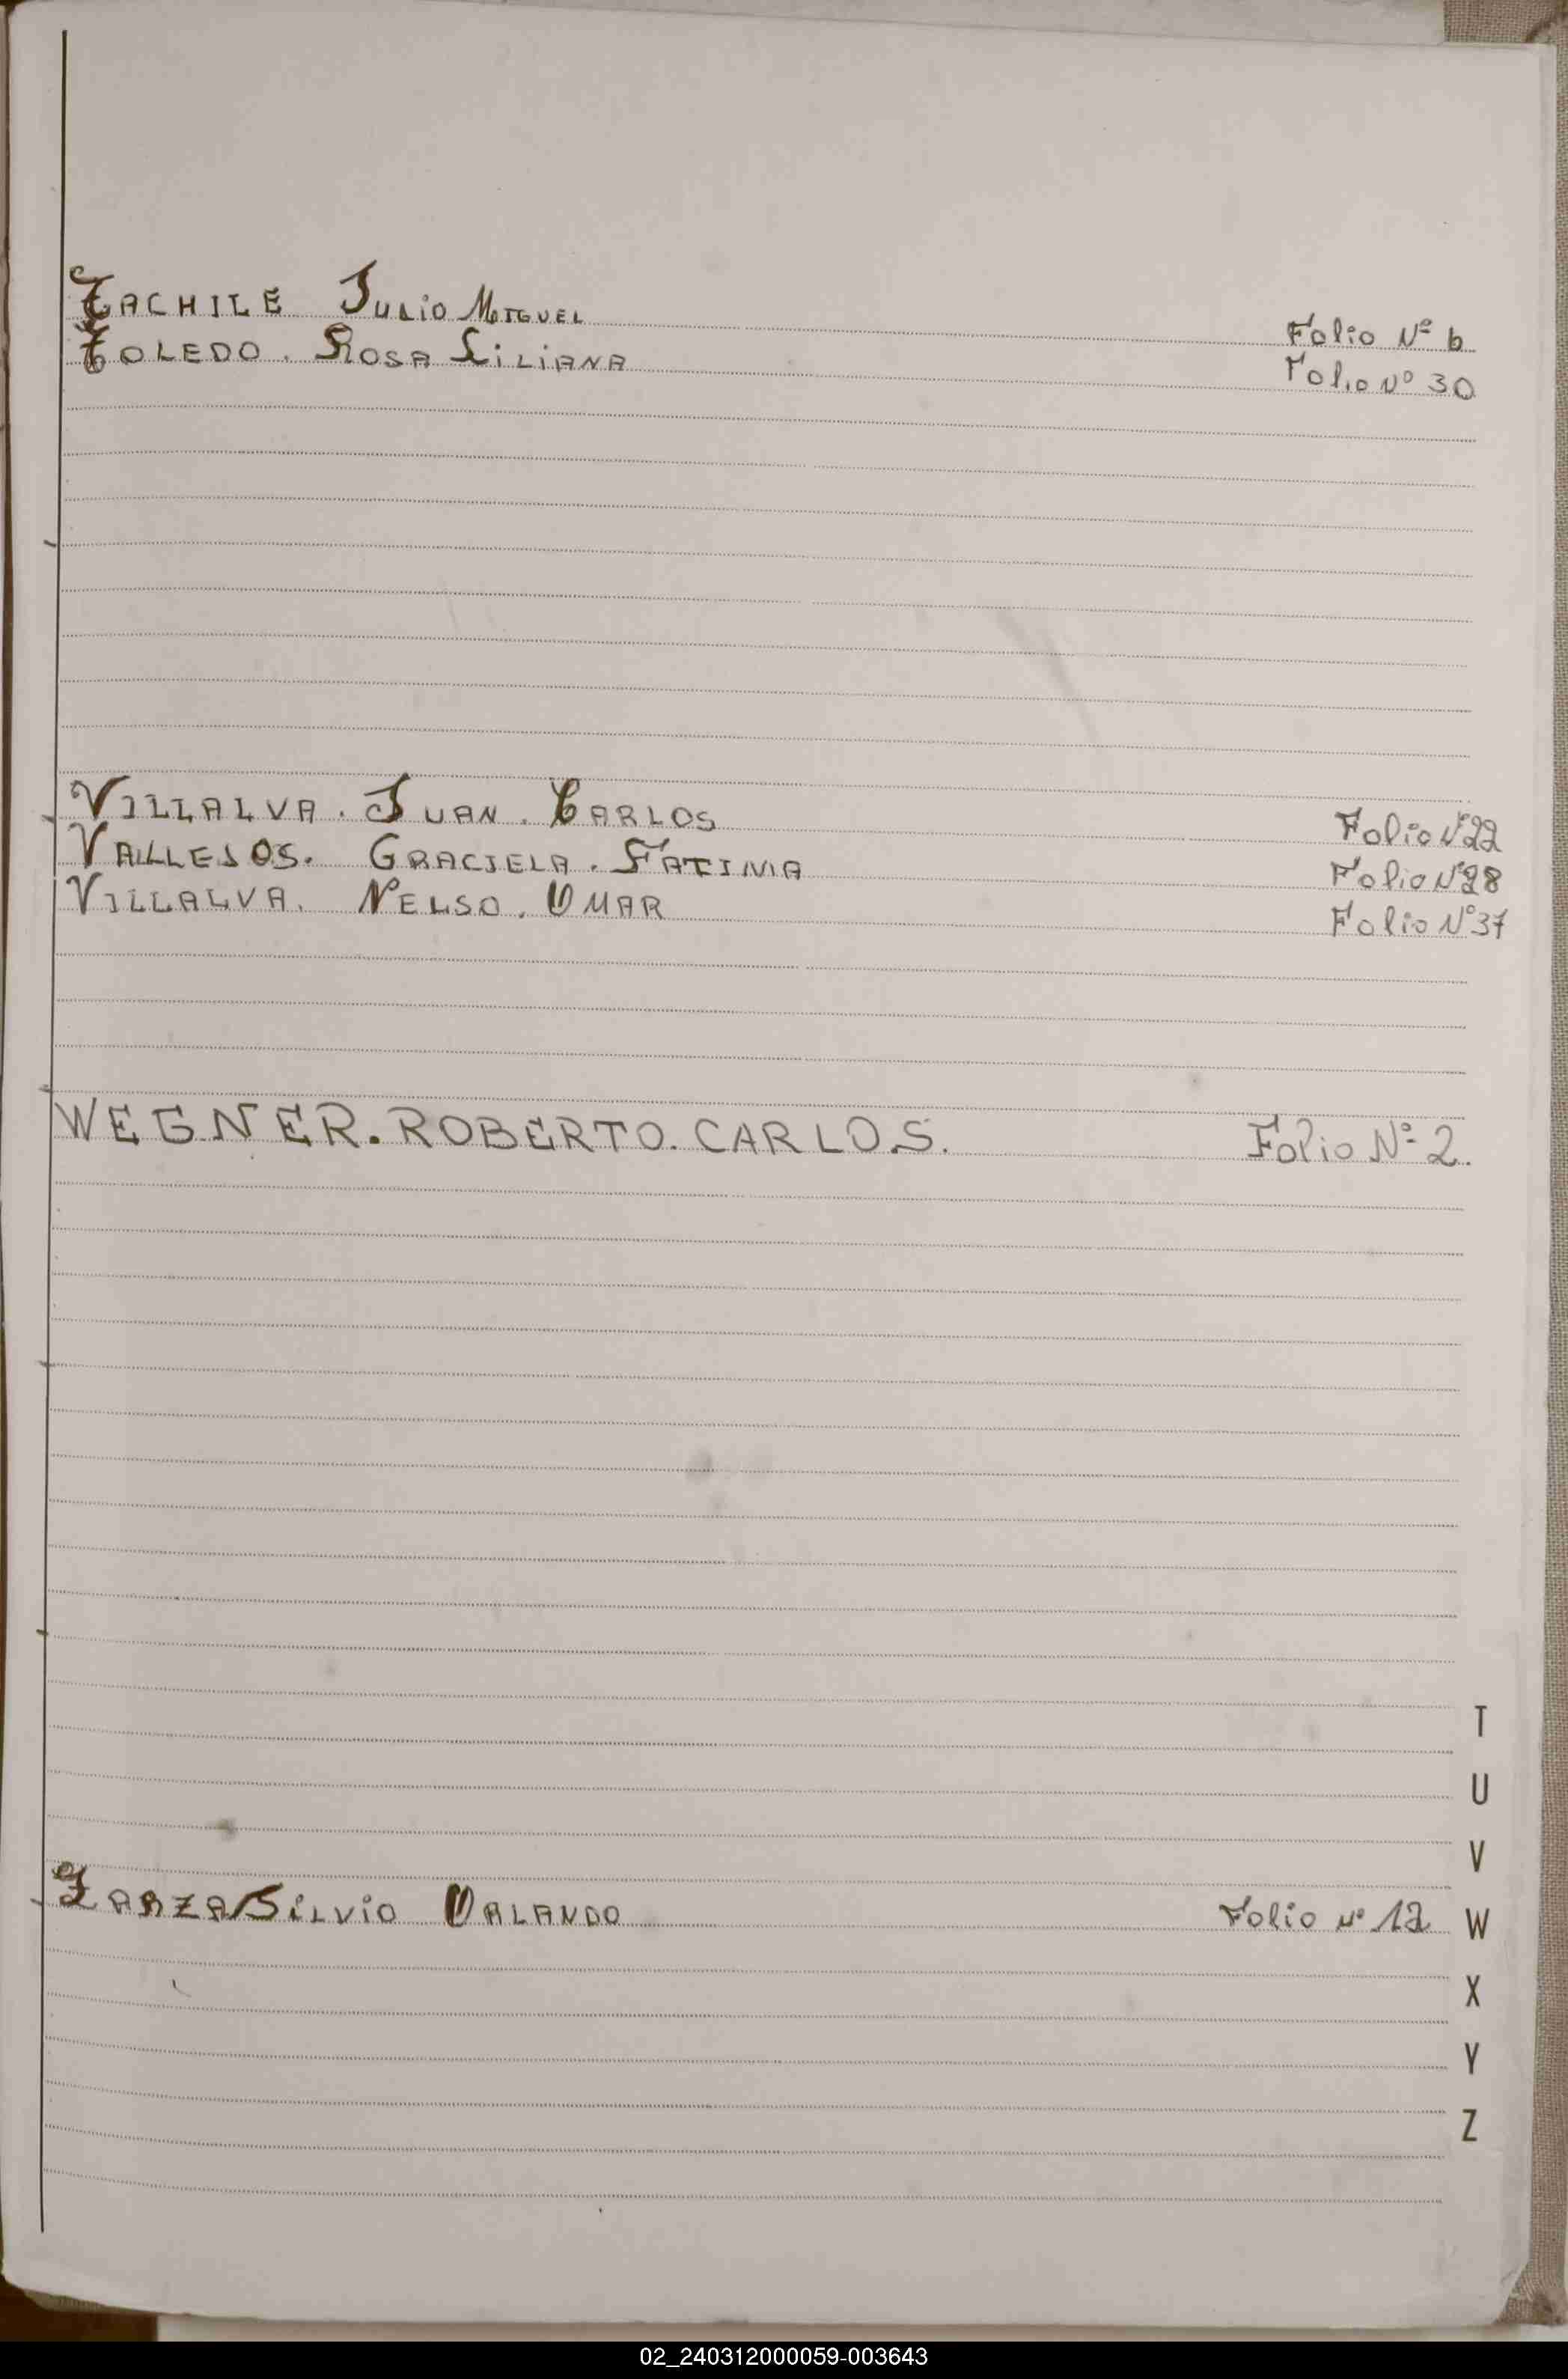 TACHILE JULIO MIGUEL Folio Nº 6
TOLEDO. ROSA LILIANA Folio Nº 30
VILLALVA. JUAN. CARLOS Folio Nº 22
VALLEJOS. GRACIELA. FATIMA Folio Nº 28
VILLALVA. NELSO. OMAR Folio Nº 37
WEGNER. ROBERTO. CARLOS. Folio Nº 2.
T
U
V
ZARZA SILVIO ORLANDO Folio Nº 12
W
X
Y
Z
02_240312000059-003643